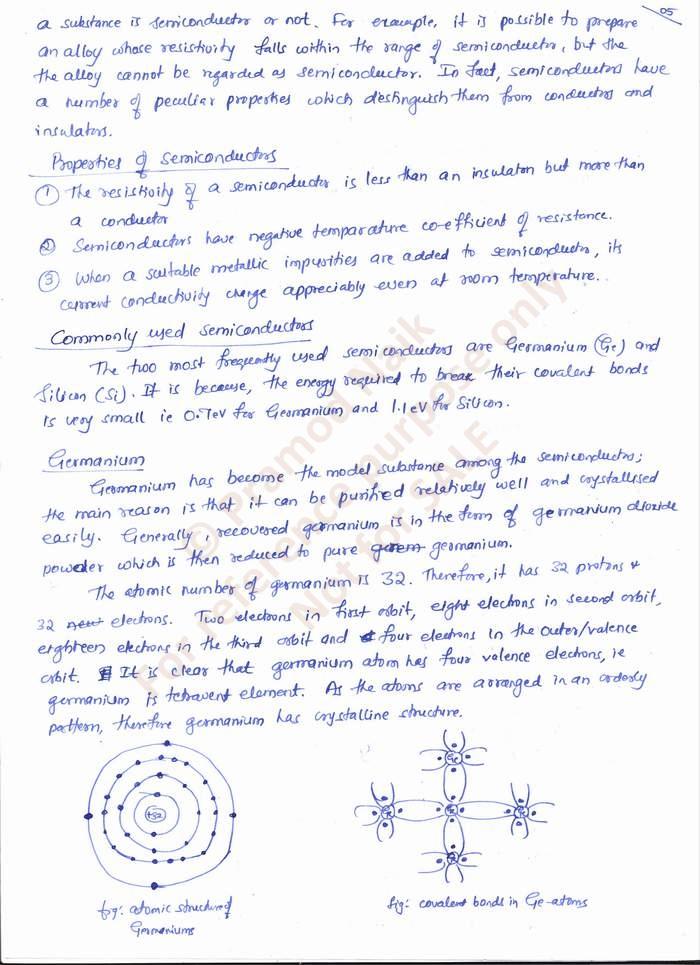 05
a substance is semiconductor or not. For example, it is possible to prepare
an alloy whose resistivity falls within the range of semiconductor, but the
the alloy cannot be regarded as semiconductor. In fact, semiconductors have
a number of peculiar properties which destinguish them from conductors and
insulators.
Properties of Semiconductors
① The resistivity of a semiconductor is less than an insulator but more than
a conductor
② Semiconductors have negative temparature co-efficient of resistance.
③ When a suitable metallic impurities are added to semiconductor, its
current conductivity change appreciably even at room temperature.
Commonly used semiconductors
The two most frequently used semiconductors are Germanium (Ge) and
Silicon (Si). It is because, the energy required to break their covalent bonds
is very small ie 0.7eV for Germanium and 1.1eV for Silicon.
Germanium
Germanium has become the model substance among the semiconductors;
the main reason is that it can be purified relatively well and crystallised
easily. Generally, recovered germanium is in the form of germanium dioxide
powder which is then reduced to pure germanium.
The atomic number of germanium is 32. Therefore, it has 32 protons &
32 electrons. Two electrons in first orbit, eight electrons in second orbit,
eighteen electrons in the third orbit and four electrons in the outer/valence
orbit. It is clear that germanium atom has four valence electrons, ie
germanium is tetravent element. As the atoms are arranged in an orderly
pattern, therefore germanium has crystalline structure.
+32
Ge
Ge
Ge
Ge
Ge
fig: atomic structure of
Germaniums
fig: covalent bonds in Ge-atoms
© Pramod Naik
For reference purpose only
Not for SALE